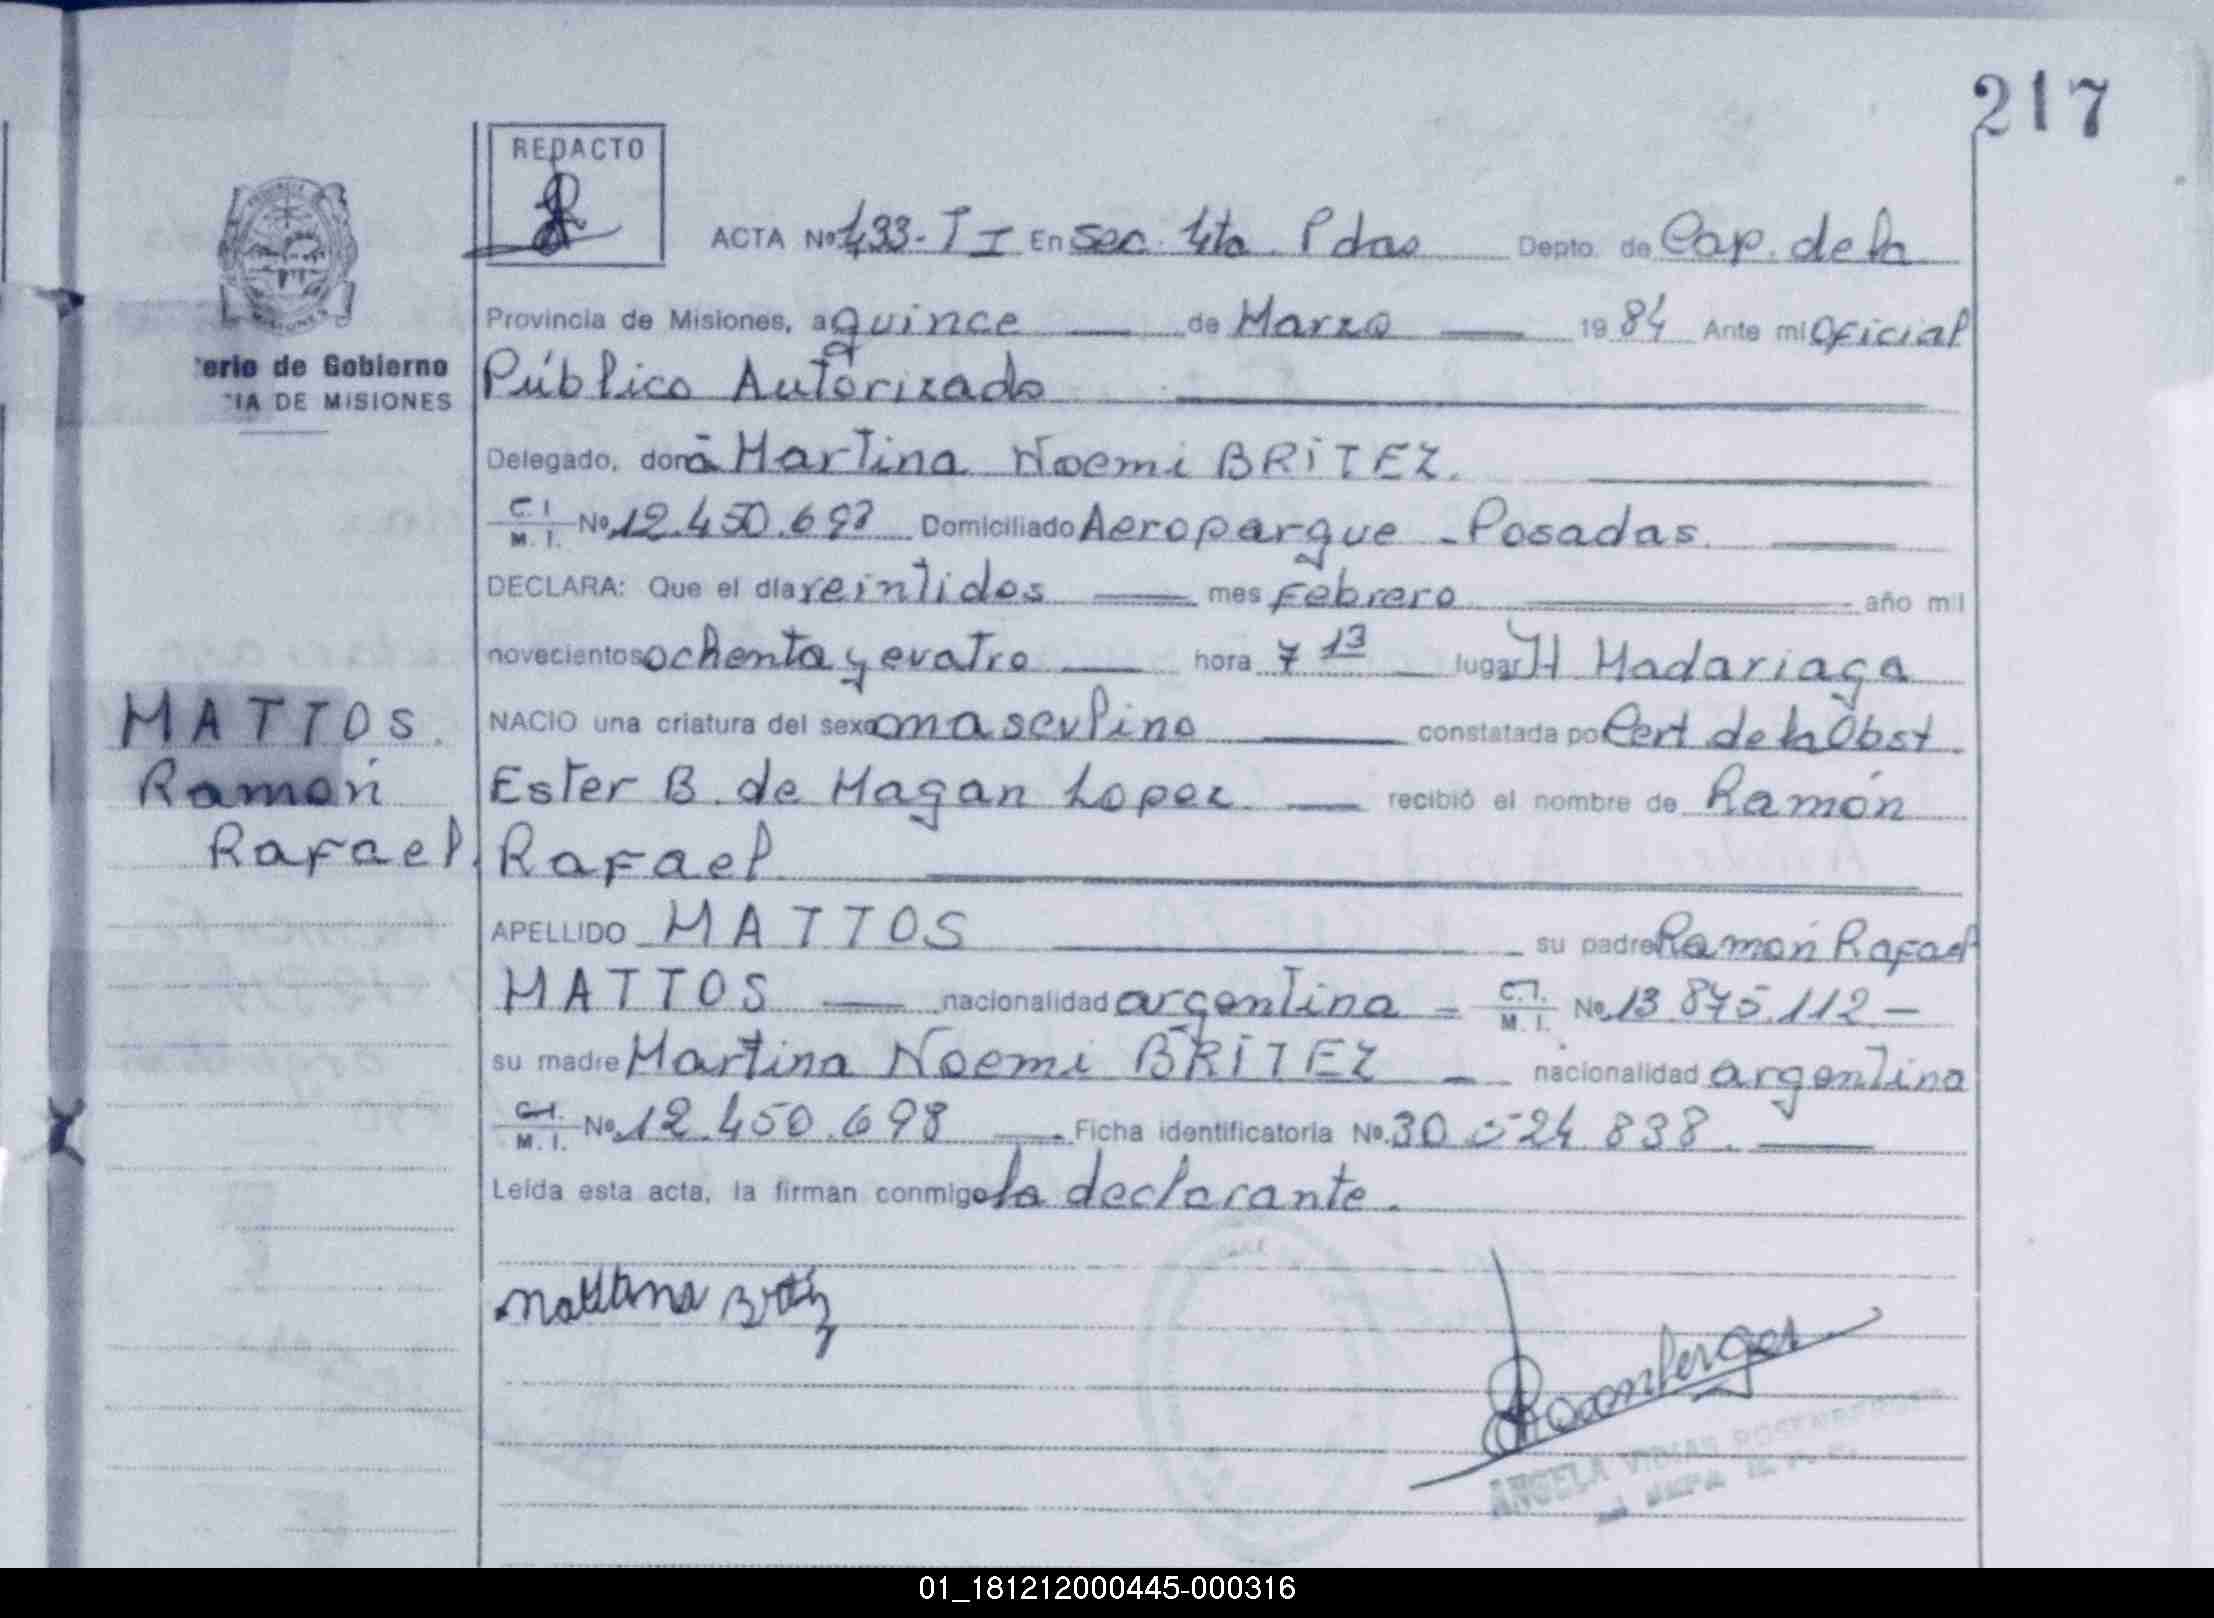 217
REDACTO
ACTA Nº 433-T I En Sec. 4ta Pdas Depto. de Cap. de la
Provincia de Misiones, a quince de Marzo 1984 Ante mi Oficial
Público Autorizado
'erio de Gobierno
'IA DE MISIONES
Delegado, donâ Martina Noemi BRITEZ.
C.I. M.I. No. 12.450.698 Domiciliado Aeroparque - Posadas.
DECLARA: Que el día veintidos mes Febrero año mil
novecientos ochenta y cuatro hora 7 13 lugar H Madariaga
NACIO una criatura del sexo masculino constatada por Cert de la Obst.
Ester B. de Magan Lopez recibió el nombre de Ramón
Rafael
MATTOS.
Ramón
Rafael.
APELLIDO MATTOS su padre Ramón Rafael
MATTOS nacionalidad argentina C.I. M.I. No. 13.875.112 -
su madre Martina Noemi BRITEZ - nacionalidad argentina
C.I. M.I. No. 12.450.698 Ficha identificatoria No. 30 524 838.
Leída esta acta, la firman conmigo la declarante.
Martina Britez
Rosenberger
ANGELA
01_181212000445-000316